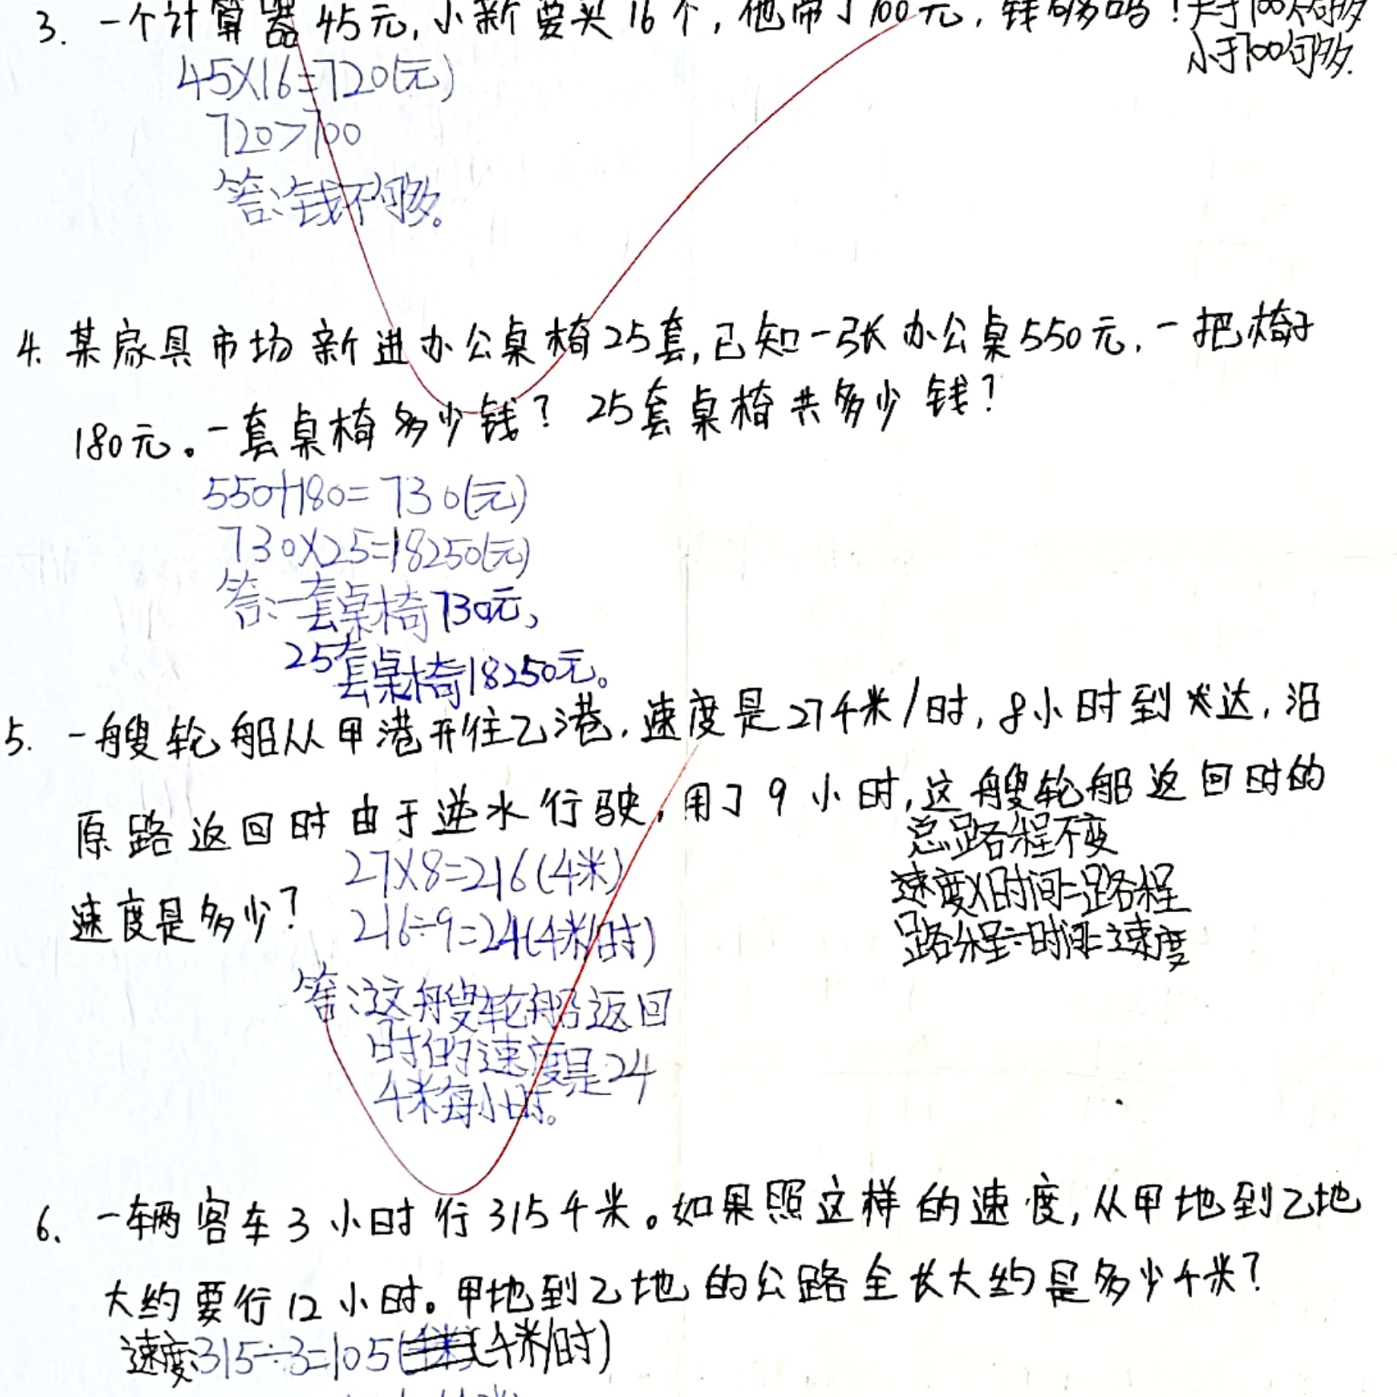 3. 一个计算器45元,小新要买16个,他带了700元,钱够吗?大于700不够
小于700够.
45×16=720(元)
720>700
答:钱不够。
4. 某家具市场新进办公桌椅25套,已知一张办公桌550元,一把椅子
180元。一套桌椅多少钱? 25套桌椅共多少钱?
550+180=730(元)
730×25=18250(元)
答:一套桌椅730元,
25套桌椅18250元。
5. 一艘轮船从甲港开往乙港,速度是27千米/时,8小时到达,沿
原路返回时由于逆水行驶,用了9小时,这艘轮船返回时的
总路程不变
速度是多少? 27×8=216(千米)
速度×时间=路程
216÷9=24(千米/时)
路程÷时间=速度
答:这艘轮船返回
时的速度是24
千米每小时。
6. 一辆客车3小时行315千米。如果照这样的速度,从甲地到乙地
大约要行12小时。甲地到乙地的公路全长大约是多少千米?
速度:315÷3=105(千米/时)